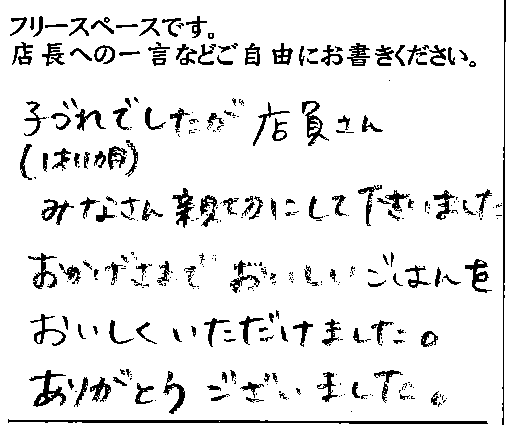 フリースペースです。
店長への一言などご自由にお書きください。
子づれでしたが 店員さん
みなさん親切にして下さいました
おかげさまで おいしいごはんを
おいしくいただけました。
ありがとうございました。